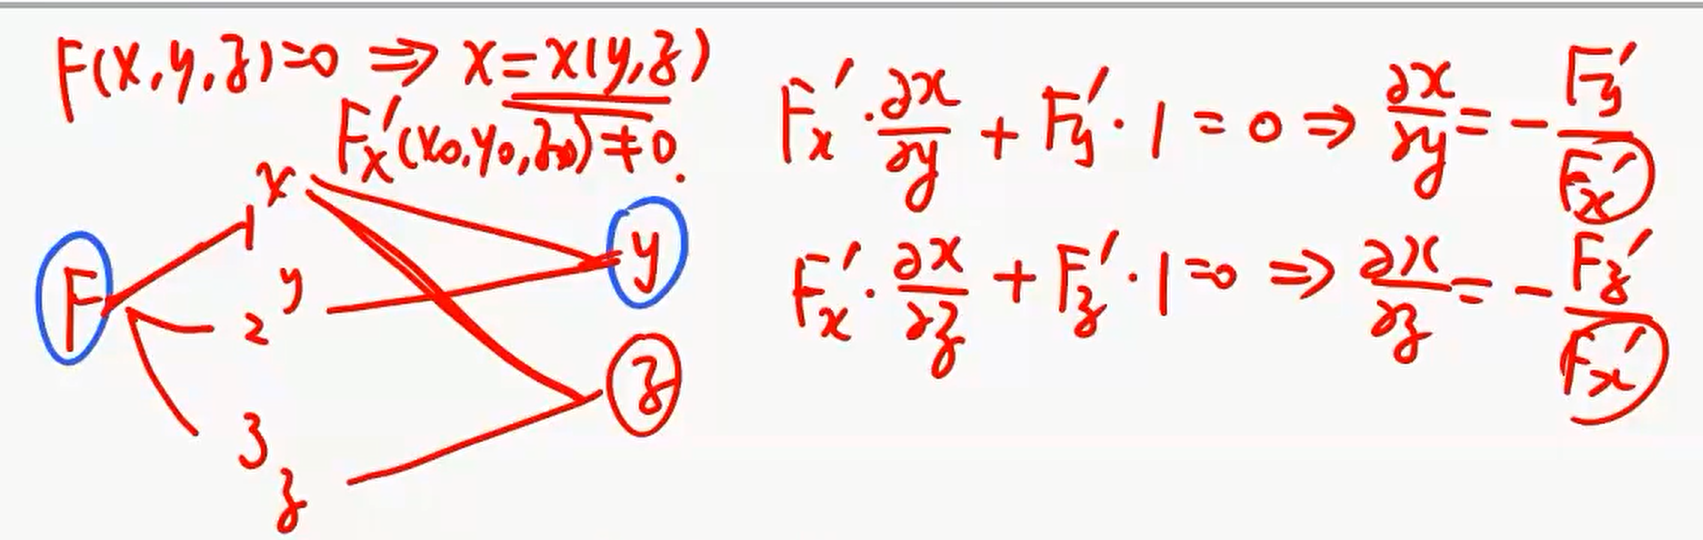 F(x,y,z)=0 ⇒ x=x(y,z)
F'x(x0,y0,z0)≠0.
F
1 x
2 y
3 z
y
z
F'x·∂x/∂y + F'y·1=0 ⇒ ∂x/∂y = -F'y/F'x
F'x·∂x/∂z + F'z·1=0 ⇒ ∂x/∂z = -F'z/F'x